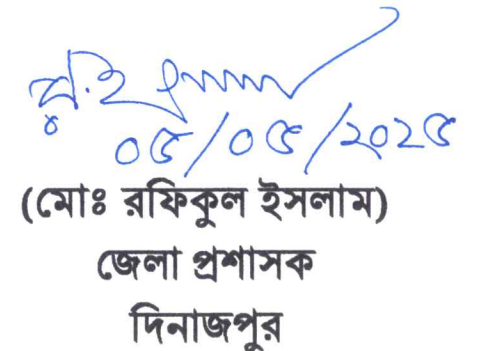 ০৫/০৫/২০২৫
(মোঃ রফিকুল ইসলাম)
জেলা প্রশাসক
দিনাজপুর